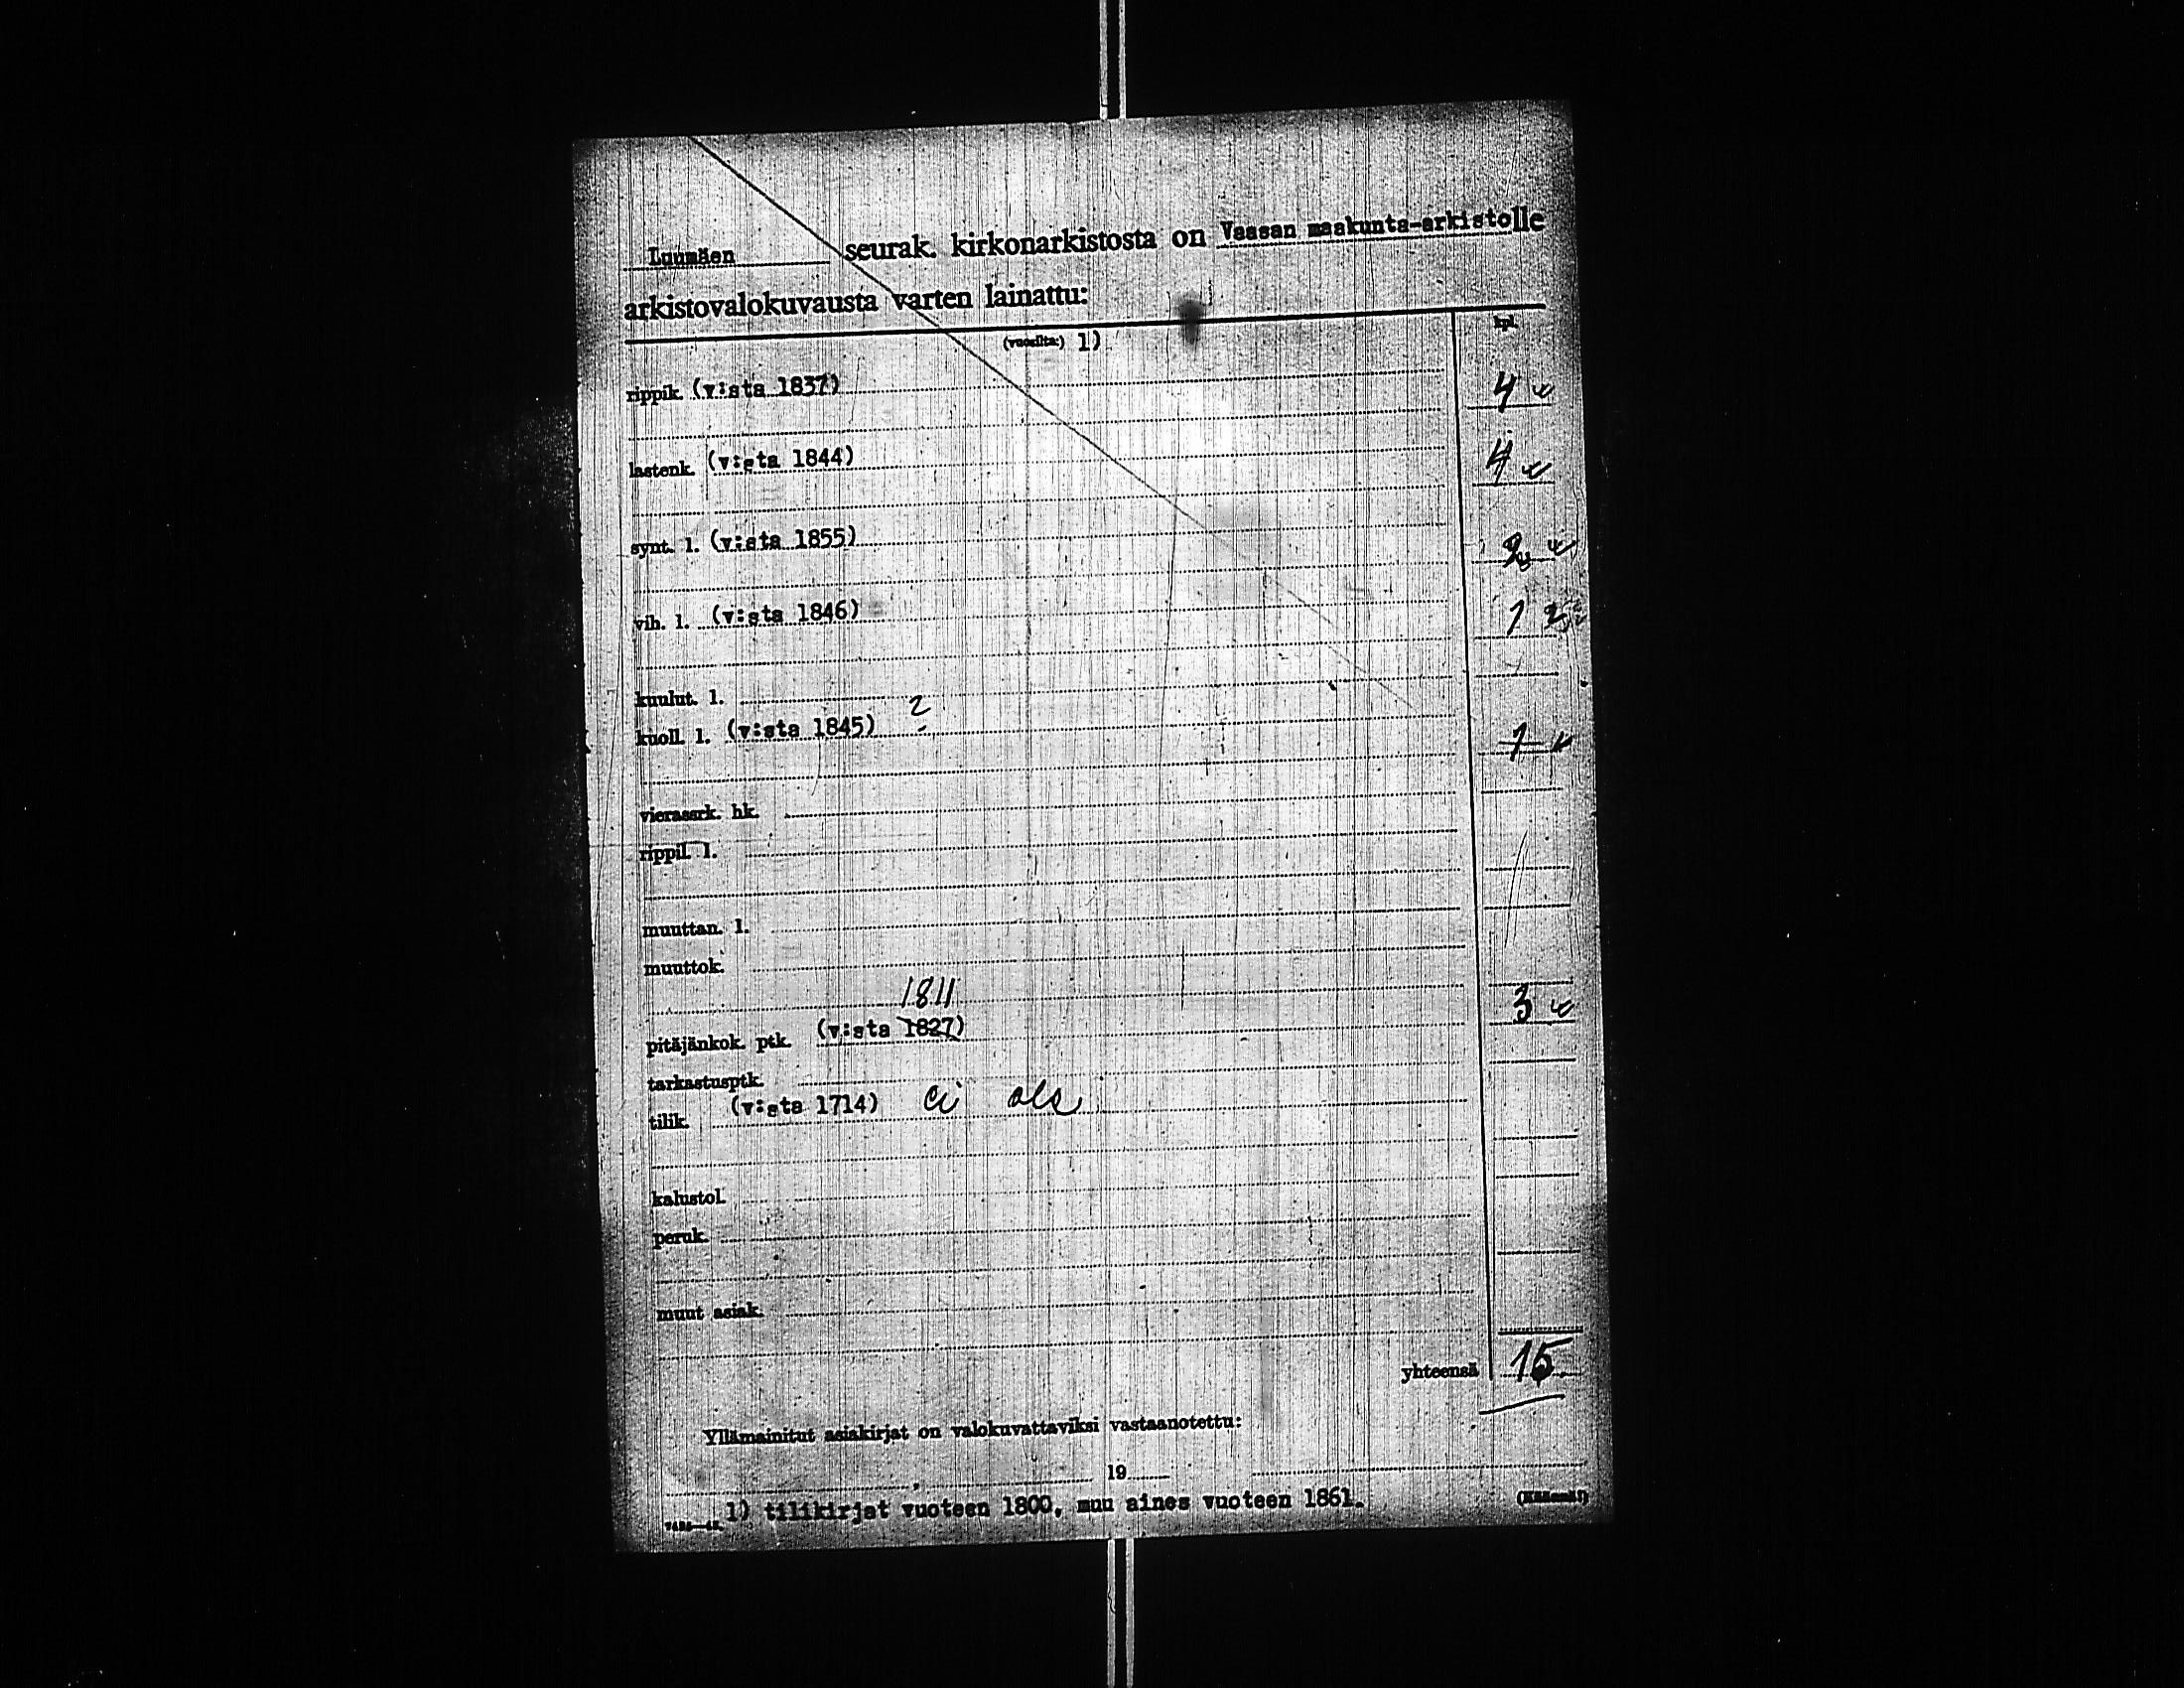 Luumäen seurak. kirkonarkistosta on Vaasan maakunta-arkistolle
arkistovalokuvausta varten lainattu:
(vuosilta:) 1) kpl.
rippik. (v:sta 1837) 4
lastenk. (v:sta 1844) 4
synt. l. (v:sta 1855)
vih. l. (v:sta 1846) 1
kuulut. l.
kuoll. l. (v:sta 1845) 2 1
vierasark. hk.
rippil. l.
muuttan. l.
muuttok.
1811
pitäjänkok. ptk. (v:sta 1827) 3
tarkastusptk.
tilik. (v:sta 1714) ei ole
kalustol.
peruk.
muut asiak.
yhteensä 15
Yllämainitut asiakirjat on valokuvattaviksi vastaanotettu:
, 19
1) tilikirjat vuoteen 1800, muu aines vuoteen 1861.